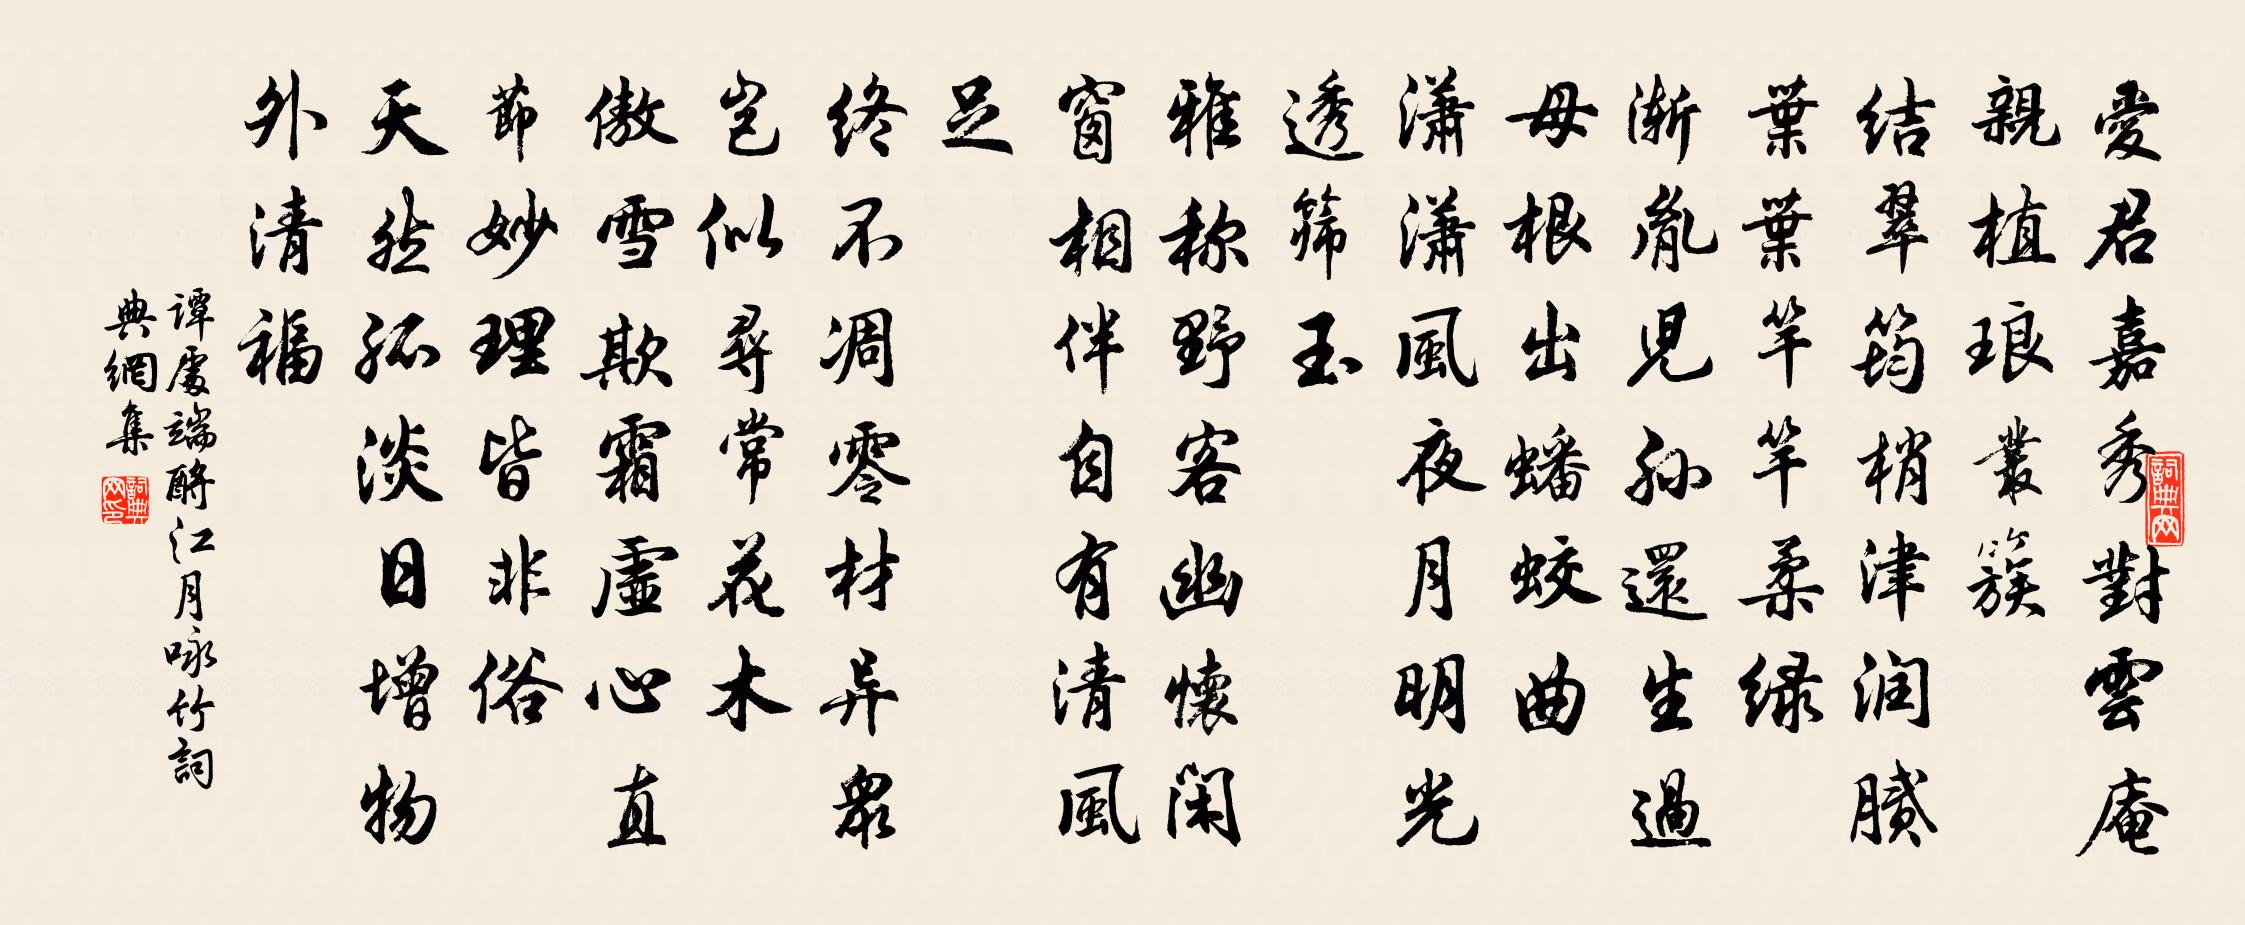 愛君嘉秀對雲庵
親植琅叢簇
結翠筠梢津润膩
葉葉竿竿柔緑
漸胤児孙還生過
母根出蟠蛟曲
瀟瀟風夜月明光
透筛玉
雅称野客幽懷闲
窗相伴自有清風
足
终不凋零材异眾
岂似尋常花木
傲雪欺霜虚心直
節妙理皆非俗
天然孤淡日增物
外清福
譚處端酹江月咏竹詞
典網集
詞典网
詞典网印